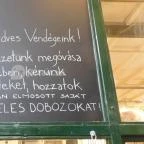 dves Vendégeink!
zetünk megóvása
ben, kérünk
eket, hozzatok
án elmosott saját
eles dobozokat!